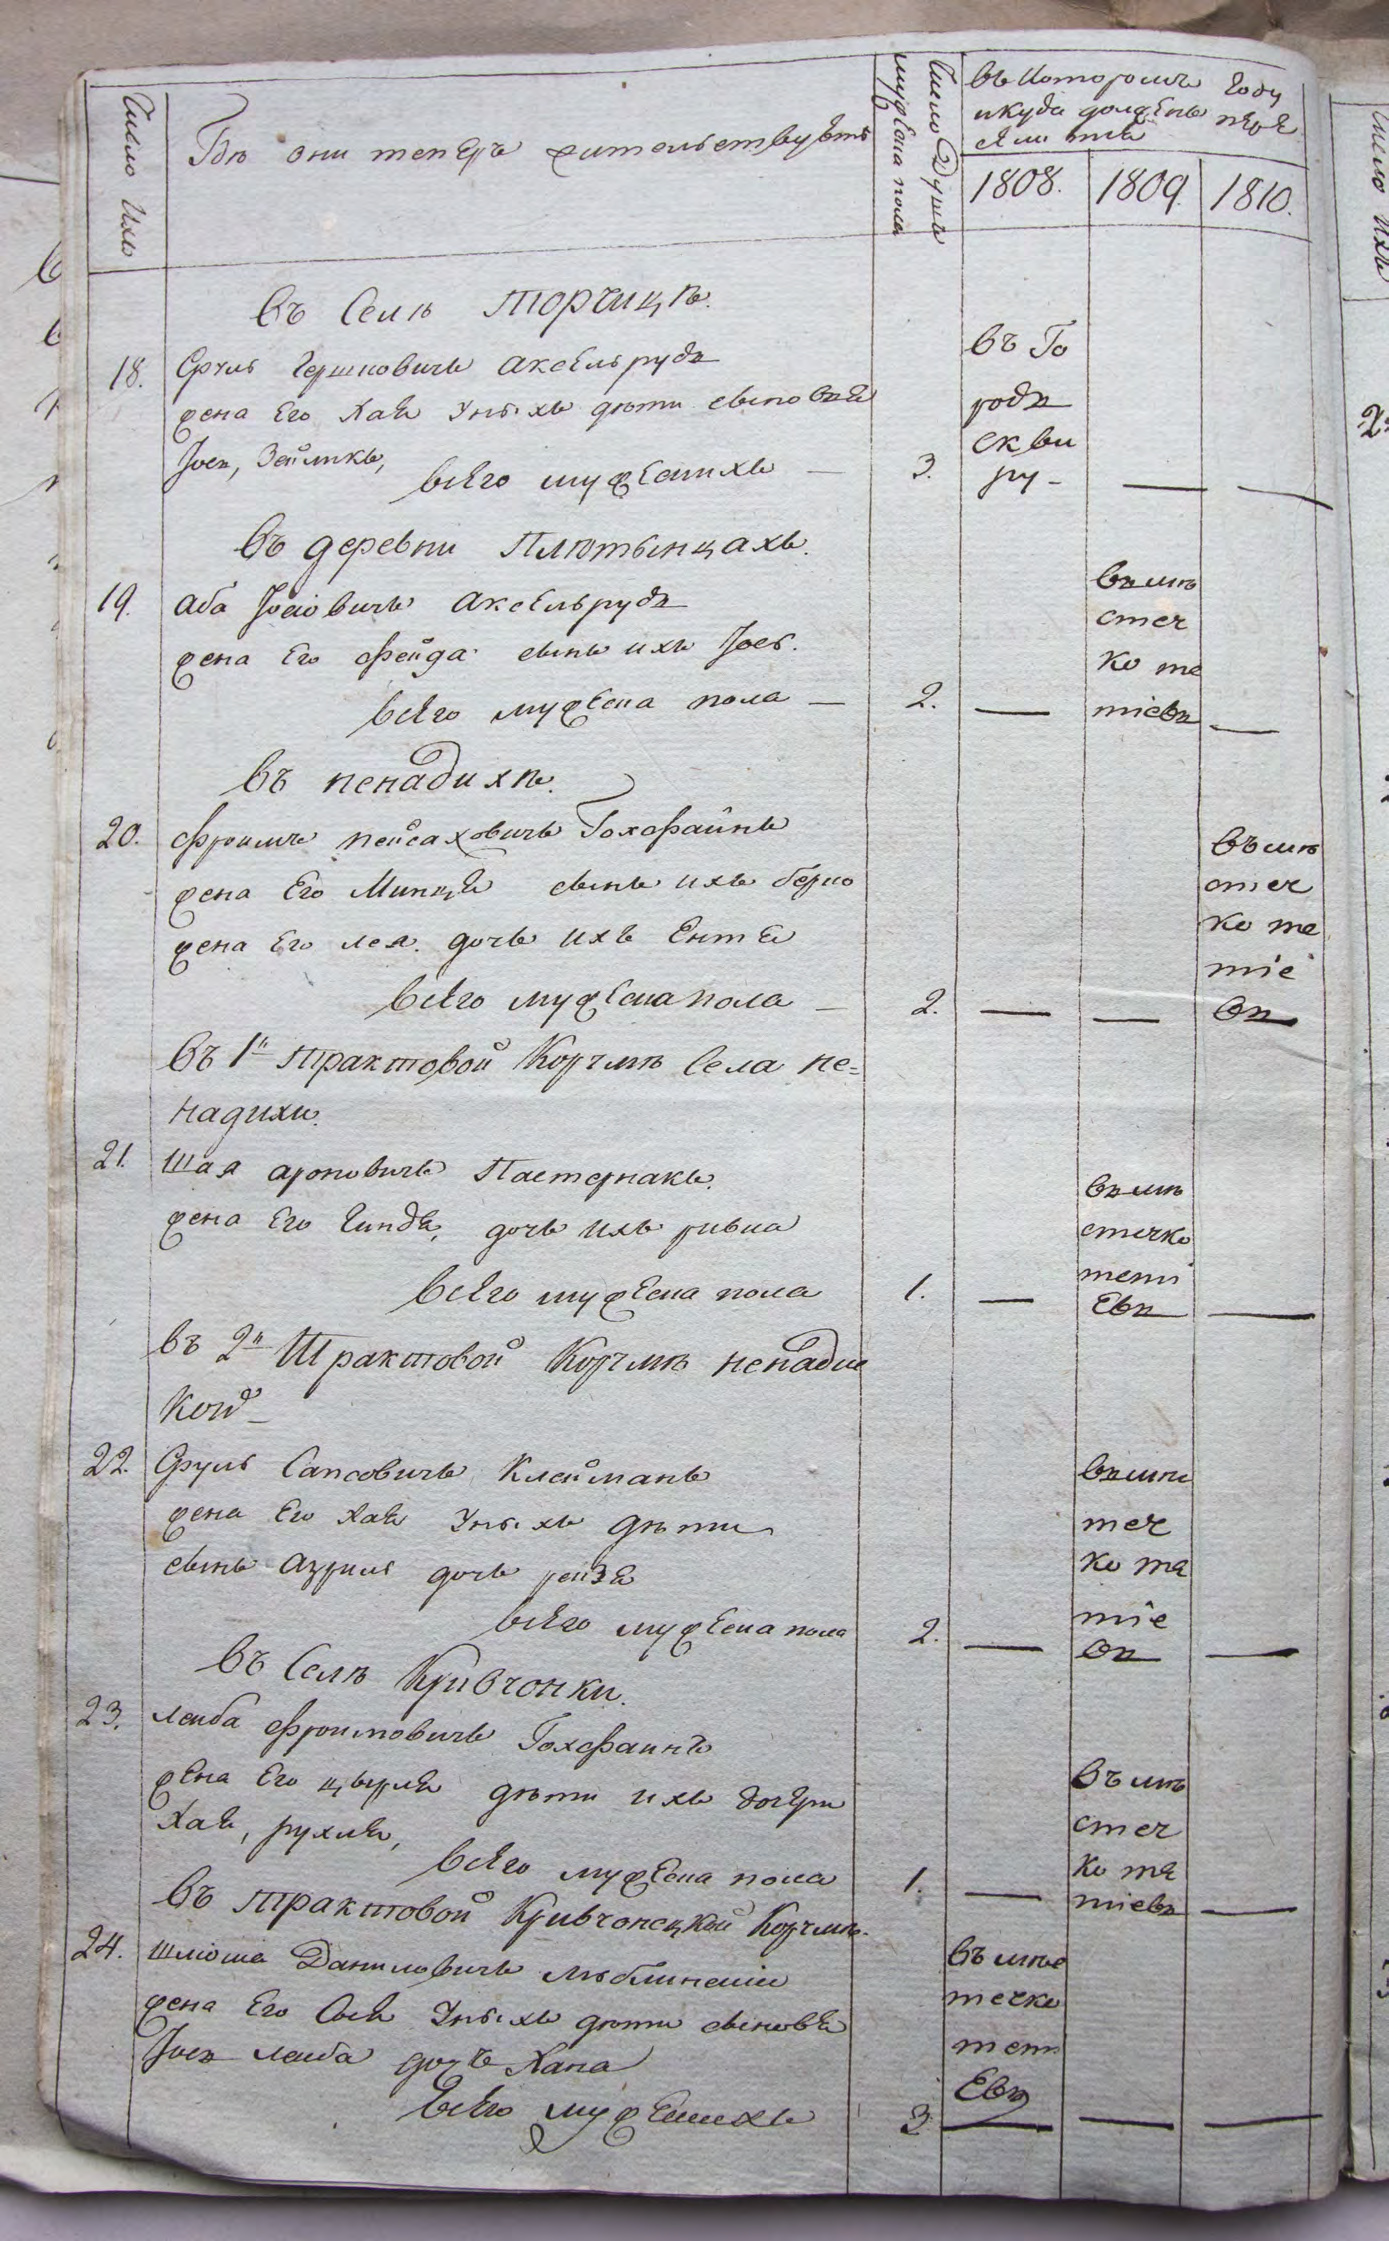 Число ихъ
Где они теперъ жительствуютъ
Число Душъ
мужеска пола
въ Которомъ Году
икуда должены пере
1808.
1809.
1810.
Число ихъ
въ Селѣ Торчицѣ.
18.
Сруль Гершковичъ Аксельрудъ
жена Его Хая унихъ дѣти сыновья
Іосъ, Зейликъ,
всего мужескихъ — 3.
въ Го
родъ
Скви
ру —
въ деревни Плютынцахъ.
19.
Аба Іосіовичъ Аксельрудъ
жена Его Фейда сынъ ихъ Іось.
всего мужеска пола — 2.
въ мѣ
стеч
ко те
тіевъ
въ ненадихѣ.
20.
Фроимъ Пейсаховичъ Гохфайнъ
жена Его Минця сынъ ихъ берко
жена Его лея. дочь ихъ Ентя
всего мужеска пола — 2.
въ мѣ
стеч
ко те
тіе
въ
въ 1й трактовой Корчмѣ села не=
надихи.
21.
Шая ароновичъ Пастернакъ.
жена Его Гиндя, дочь ихъ ривка
всего мужеска пола 1.
въ мѣ
стечко
тети
Евъ
въ 2й Трактовой Корчмѣ ненадис
кой —
22.
Сруль Клейманъ
жена Его Хая унихъ дѣти
сынъ Азриль дочь рейзя
всего мужеска пола 2.
въ мѣс
теч
ко те
тіе
въ
въ Селѣ Кривчонки.
23.
лейба Фроимовичъ Гохфаинъ
жена Его цырля дѣти ихъ дочери
Хая, рухля,
всего мужеска пола 1.
въ мѣ
стеч
ко те
тіевъ
въ трактовой Кривчонецкой Корчмѣ.
24.
Шліома Даниловичъ люблинскій
жена Его Сося унихъ дѣти сыновья
Іосъ лейба дочь Хана
всего мужескихъ 3
въ мѣс
течко
тети
Евъ